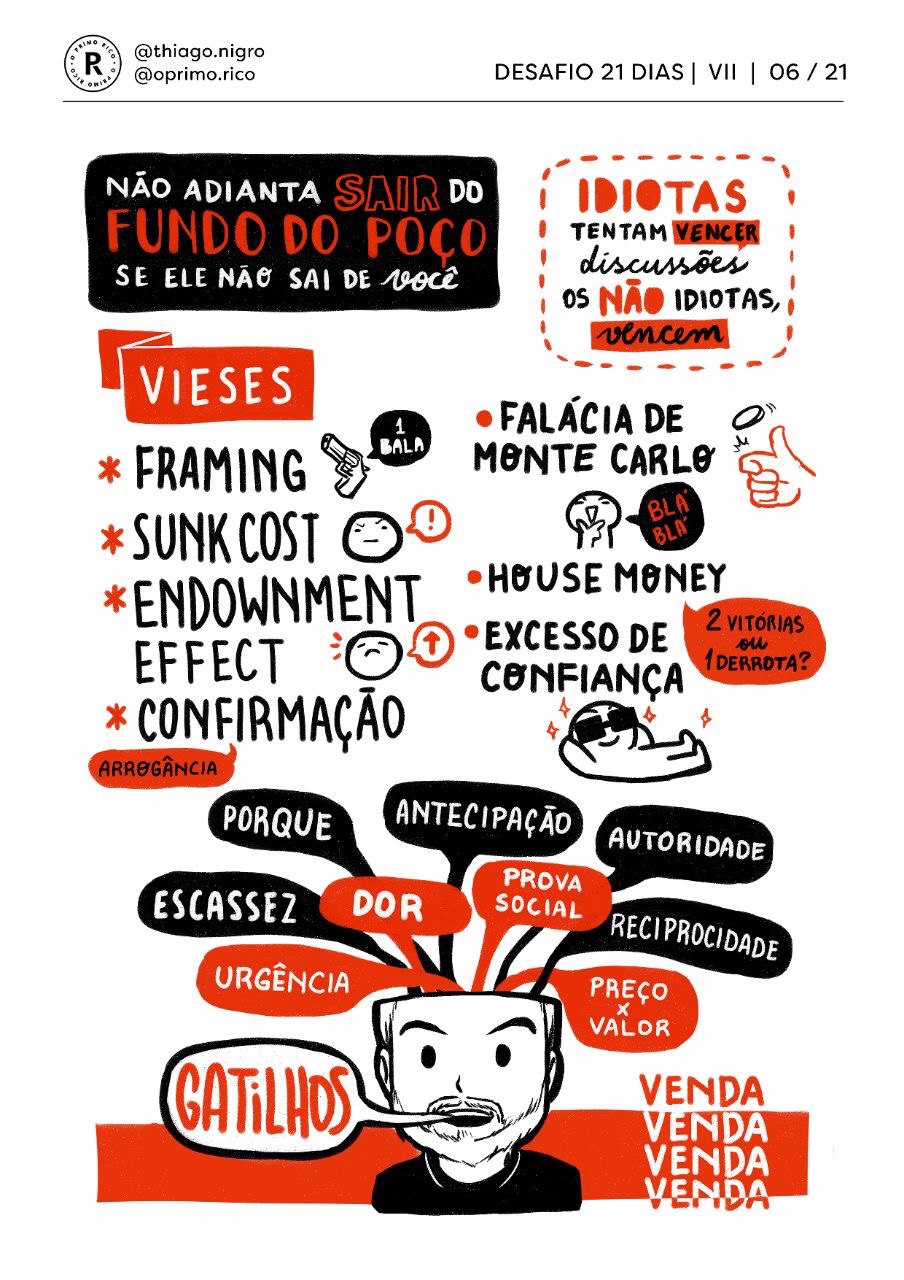 O PRIMO RICO · O PRIMO RICO ·
R
@thiago.nigro
@oprimo.rico
DESAFIO 21 DIAS | VII | 06 / 21
NÃO ADIANTA SAIR DO
FUNDO DO POÇO
SE ELE NÃO SAI DE você
IDIOTAS
TENTAM VENCER
discussões
OS NÃO IDIOTAS,
vencem
VIESES
* FRAMING
1
BALA
* SUNK COST
!
* ENDOWNMENT
EFFECT
* CONFIRMAÇÃO
ARROGÂNCIA
• FALÁCIA DE
MONTE CARLO
BLÁ
BLÁ
• HOUSE MONEY
• EXCESSO DE
CONFIANÇA
2 VITÓRIAS
ou
1 DERROTA?
PORQUE
ANTECIPAÇÃO
AUTORIDADE
ESCASSEZ
DOR
PROVA
SOCIAL
RECIPROCIDADE
URGÊNCIA
PREÇO
x
VALOR
GATILHOS
VENDA
VENDA
VENDA
VENDA